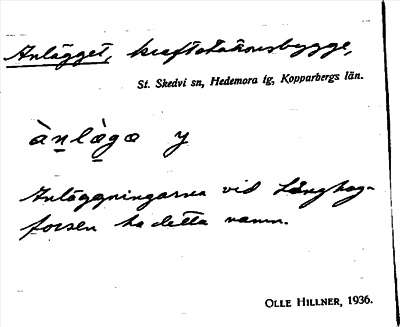 Anlägget, kraftstationsbygge,
St. Skedvi sn, Hedemora tg, Kopparbergs län.
ànlæ̀gæ y
Anläggningarna vid Långhag-
forsen ha detta namn.
OLLE HILLNER, 1936.